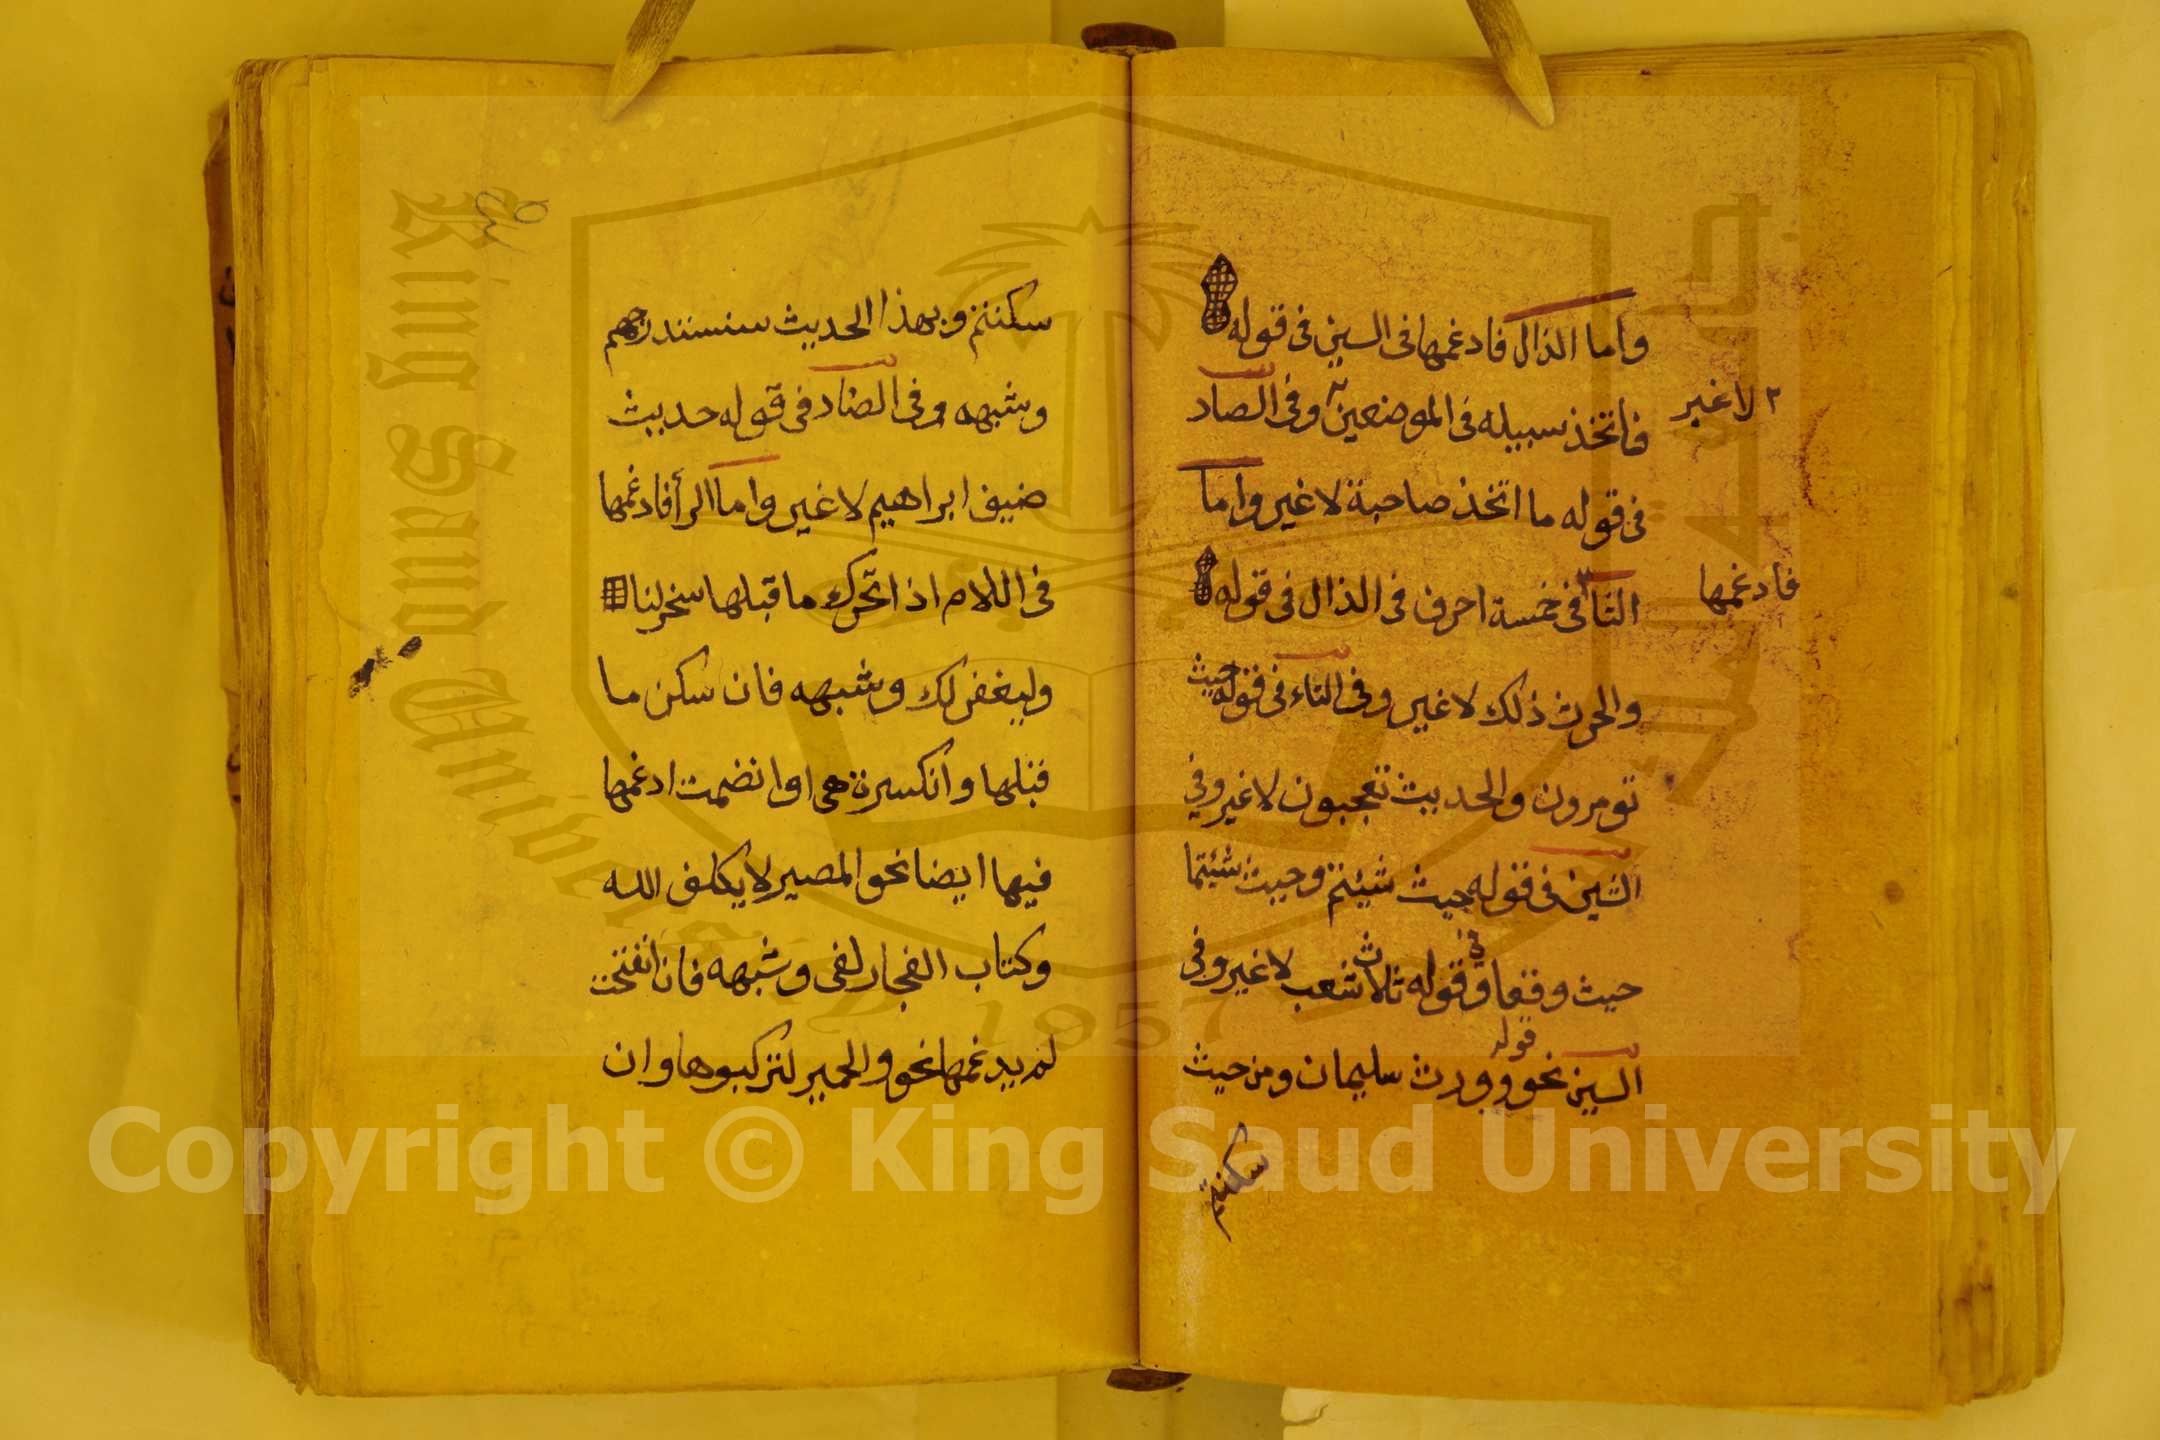 واما الذال فادغمها فى السين فى قوله
فاتخذ سبيله فى الموضعين ٢ وفى الصاد
٢ لا غير
فى قوله ما اتخذ صاحبة لا غير واما
الثا ٣ فى خمسة احرف فى الذال فى قوله
فادغمها
والحرث ذلك لا غير وفى التاء فى قوله حيث
تومرون والحديث تعجبون لا غير وفي
الشين فى قوله حيث شيئتم وحيث شيئتما
حيث وقفا وفى قوله ثلاث شعب لا غير وفى
السين نحو قوله وورث سليمان ومن حيث
سكنتم
سكنتم وبهذا الحديث سنستدرجهم
وشبهه وفى الضاد فى قوله حديث
ضيف ابراهيم لا غير واما الرأ فادغمها
فى اللام اذا تحرك ما قبلها سخر لنا
وليغفر لك وشبهه فان سكن ما
قبلها وانكسرة هى او انضمت ادغمها
فيها ايضا نحو المصير لا يكلف الله
وكتاب الفجار لفى وشبهه فان انفتحت
لم يدغمها نحو والحمير لتركبوها وان
King Saud University
1957
Copyright © King Saud University